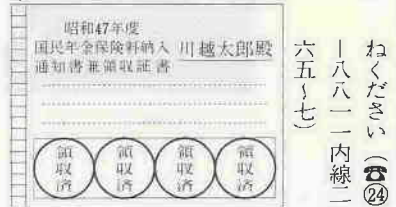 ねください(☎㉔
ー八八一一内線二
六五〜七)
昭和47年度
国民年金保険料納入
通知書兼領収証書
川越太郎殿
領収済
領収済
領収済
領収済